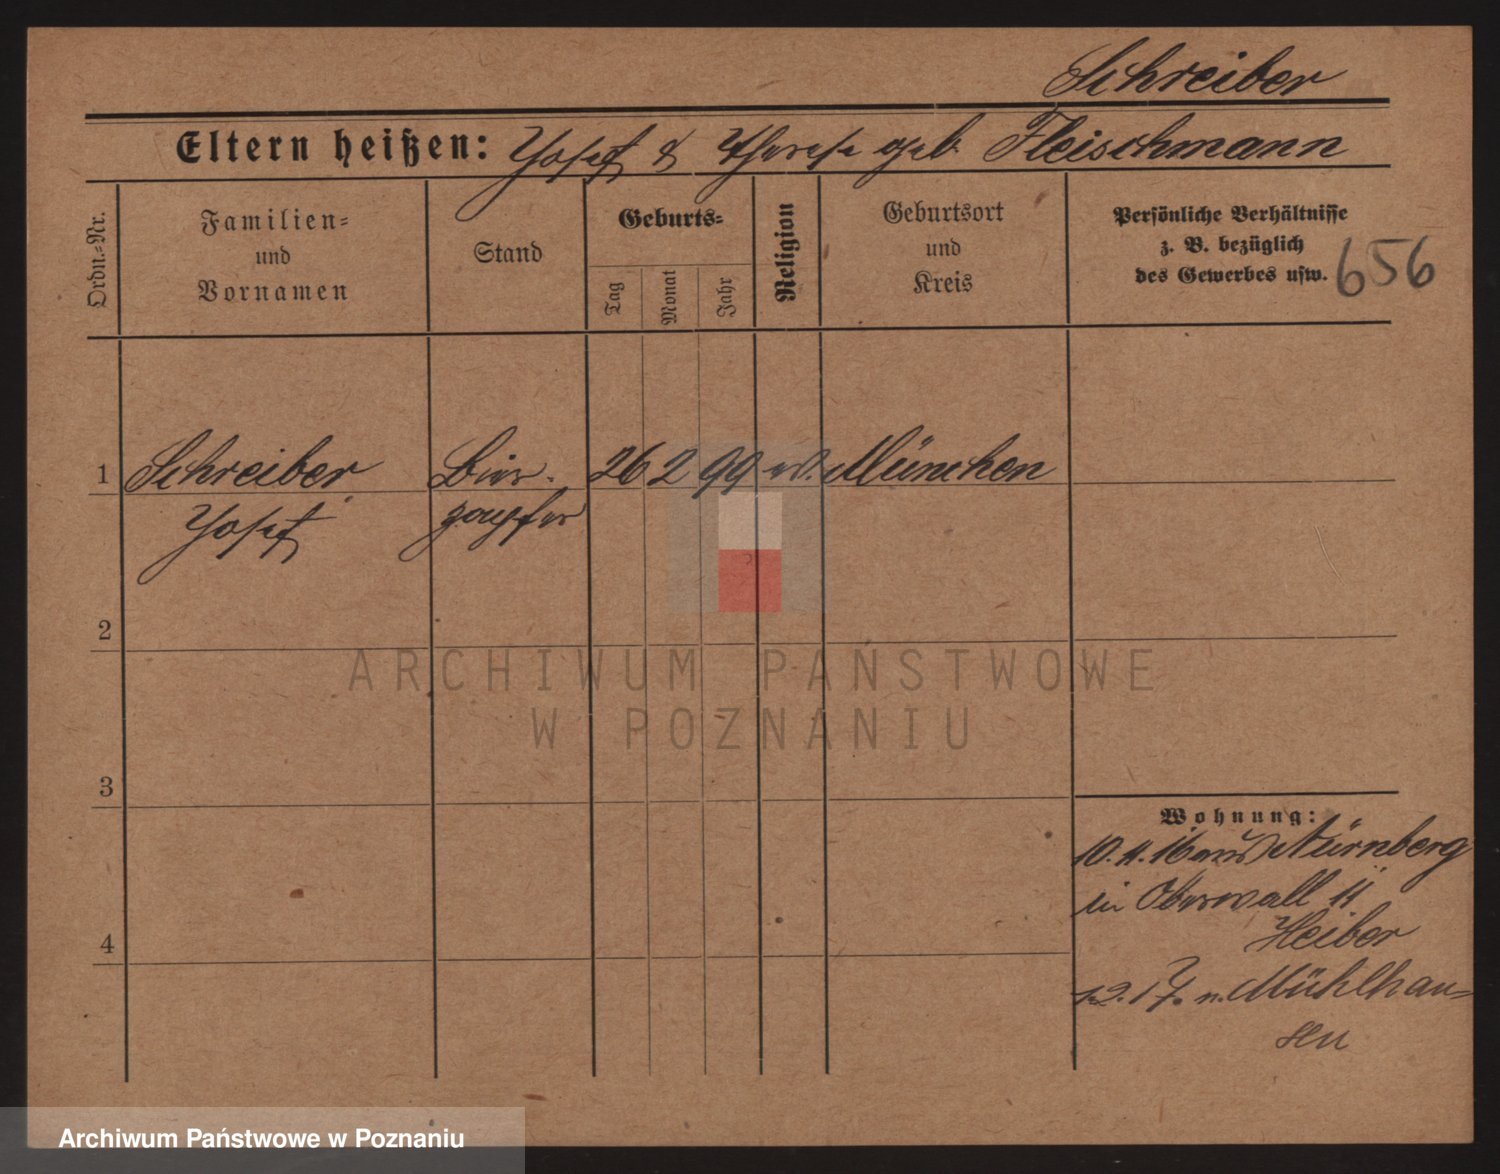 Schreiber
Eltern heißen: Josef & Therese geb. Fleischmann
Ordn.=Nr.
Familien=
und
Vornamen
Stand
Geburts=
Tag
Monat
Jahr
Religion
Geburtsort
und
Kreis
Persönliche Verhältnisse
z. B. bezüglich
des Gewerbes usw.
656
1 Schreiber Bier- 26 2 99 München
Josef zapfer
2
3
4
ARCHIWUM PAŃSTWOWE
W POZNANIU
Wohnung:
10. 11. 16 aus Nürnberg
in Oberwall 11
Heiber
12. 17. n. Mühlhau=
sen
Archiwum Państwowe w Poznaniu